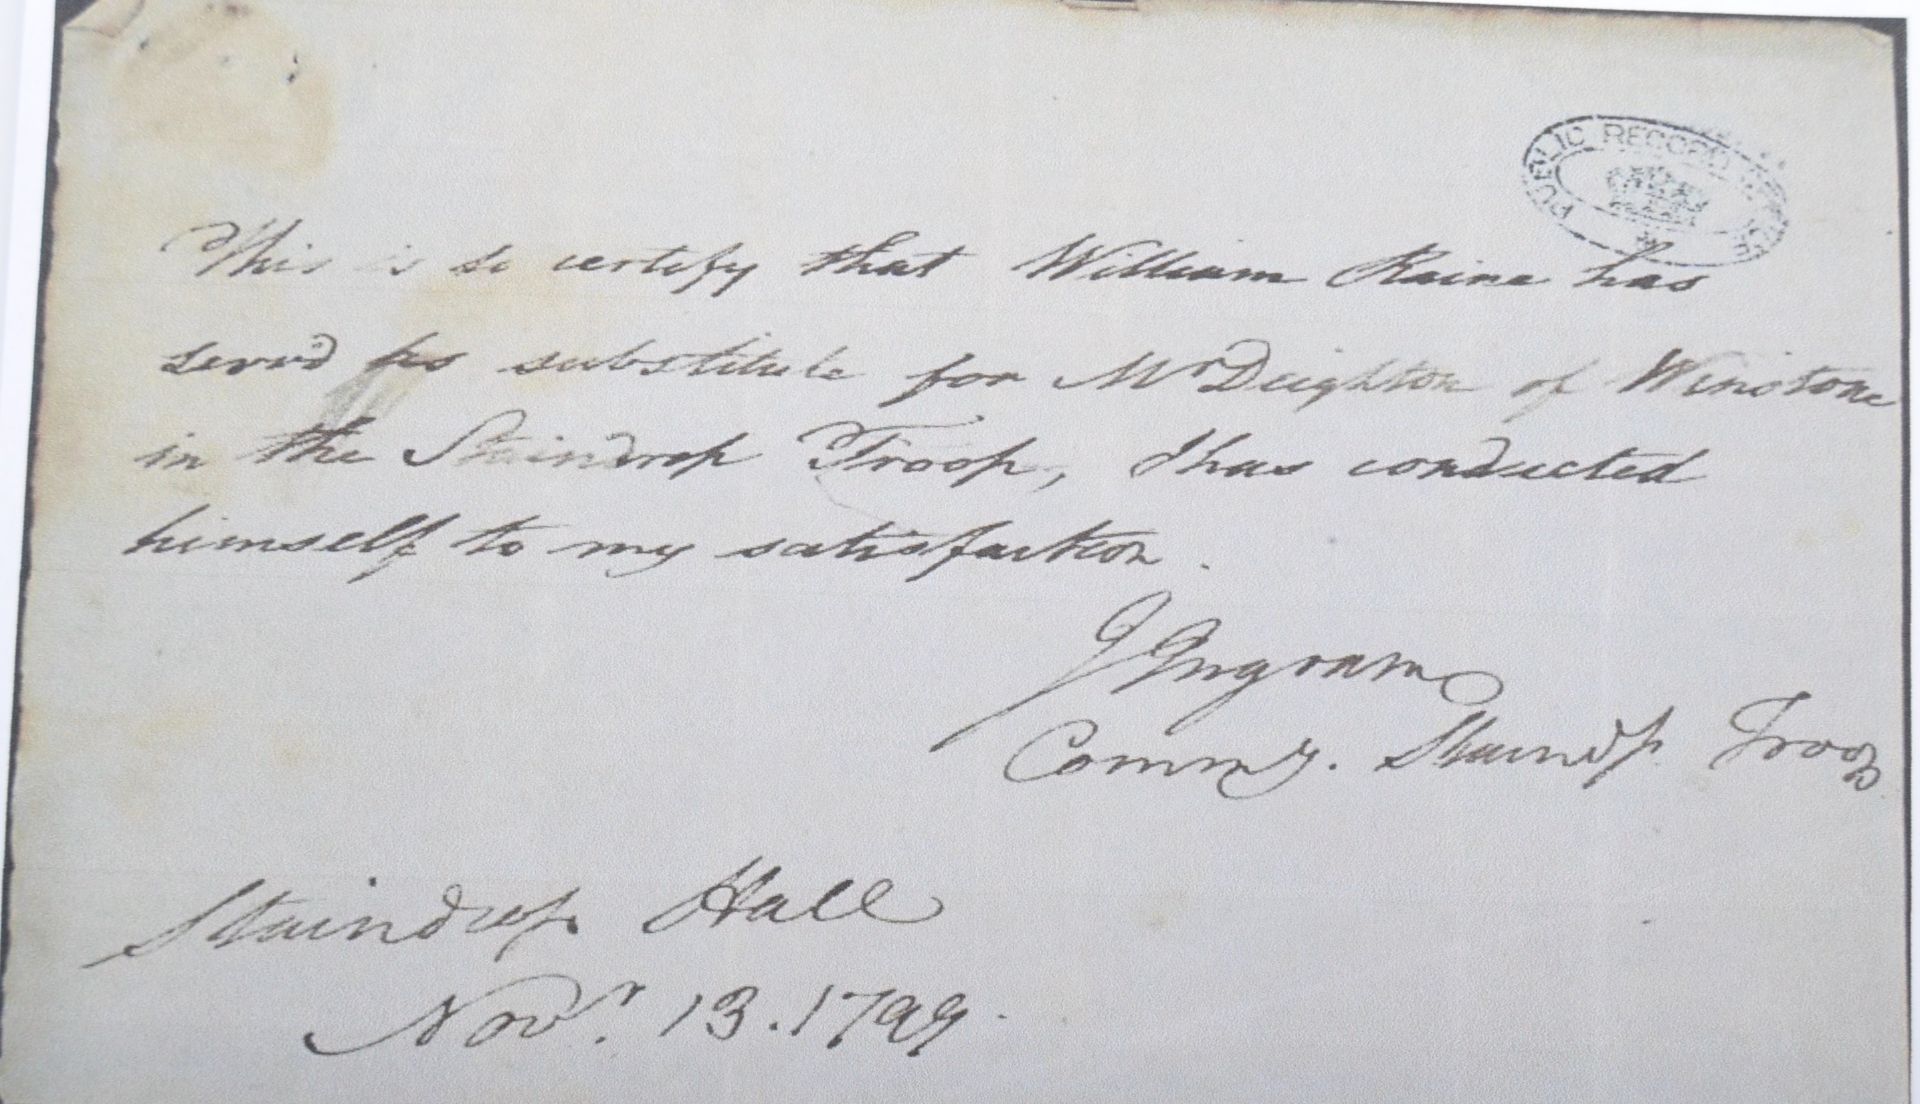 PUBLIC RECORD OFFICE
This is to certify that William Raine has
serv'd as substitute for Mr Deighton of Winstone
in the Staindrop Troop, & has conducted
himself to my satisfaction.
J Ingram
Commg. Staindp Troop
Staindrop Hall
Novr. 13. 1799.